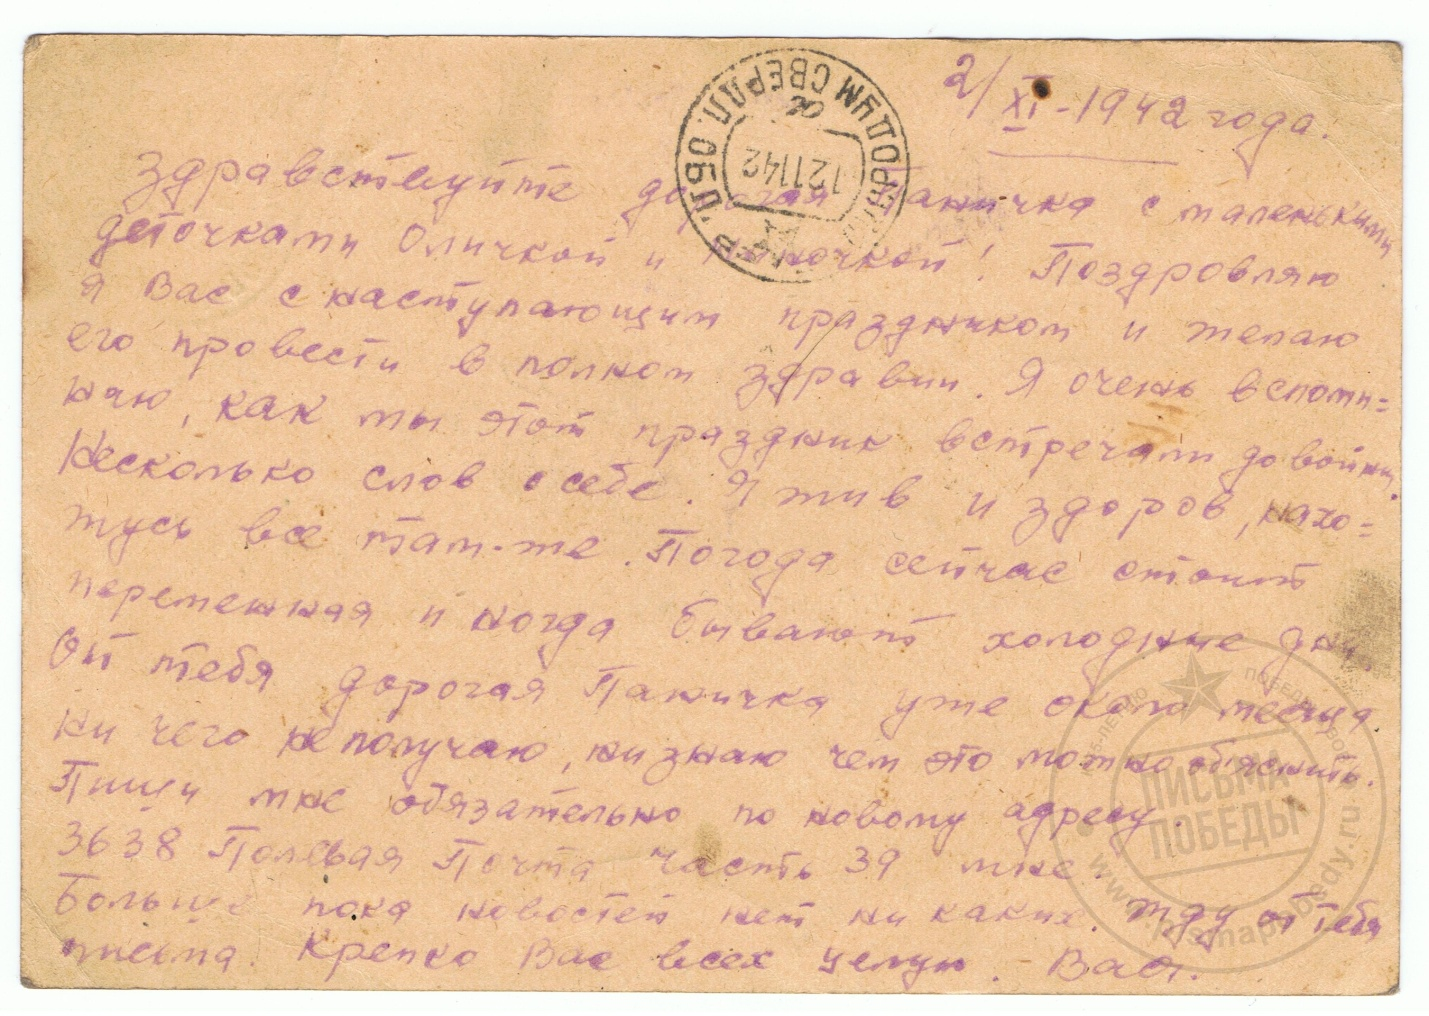 2/XI-1942 года.
Здравствуйте дорогая Паничка с маленькими
деточками Оличкой и Ниночкой! Поздровляю
я Вас с наступающим праздником и желаю
его провести в полном здравии. Я очень вспоми=
наю, как мы этот праздник встречали до войны.
Несколько слов о себе. Я жив и здоров, нахо=
жусь все там-же. Погода сейчас стоит
перемежная и ногда бывают холодные дни.
От тебя дорогая Паничка уже около месяца
ни чего не получаю, ни знаю чем это можно объяснить.
Пиши мне обязательно по новому адресу.
3638 Полевая Почта часть 39 мне.
Больше пока новостей нет ни каких. Жду от тебя
письма. Крепко Вас всех целую. Вас.
СВЕРДЛ. ОБЛ.
121142
ПИСЬМА
ПОБЕДЫ
www.pismapobedy.ru